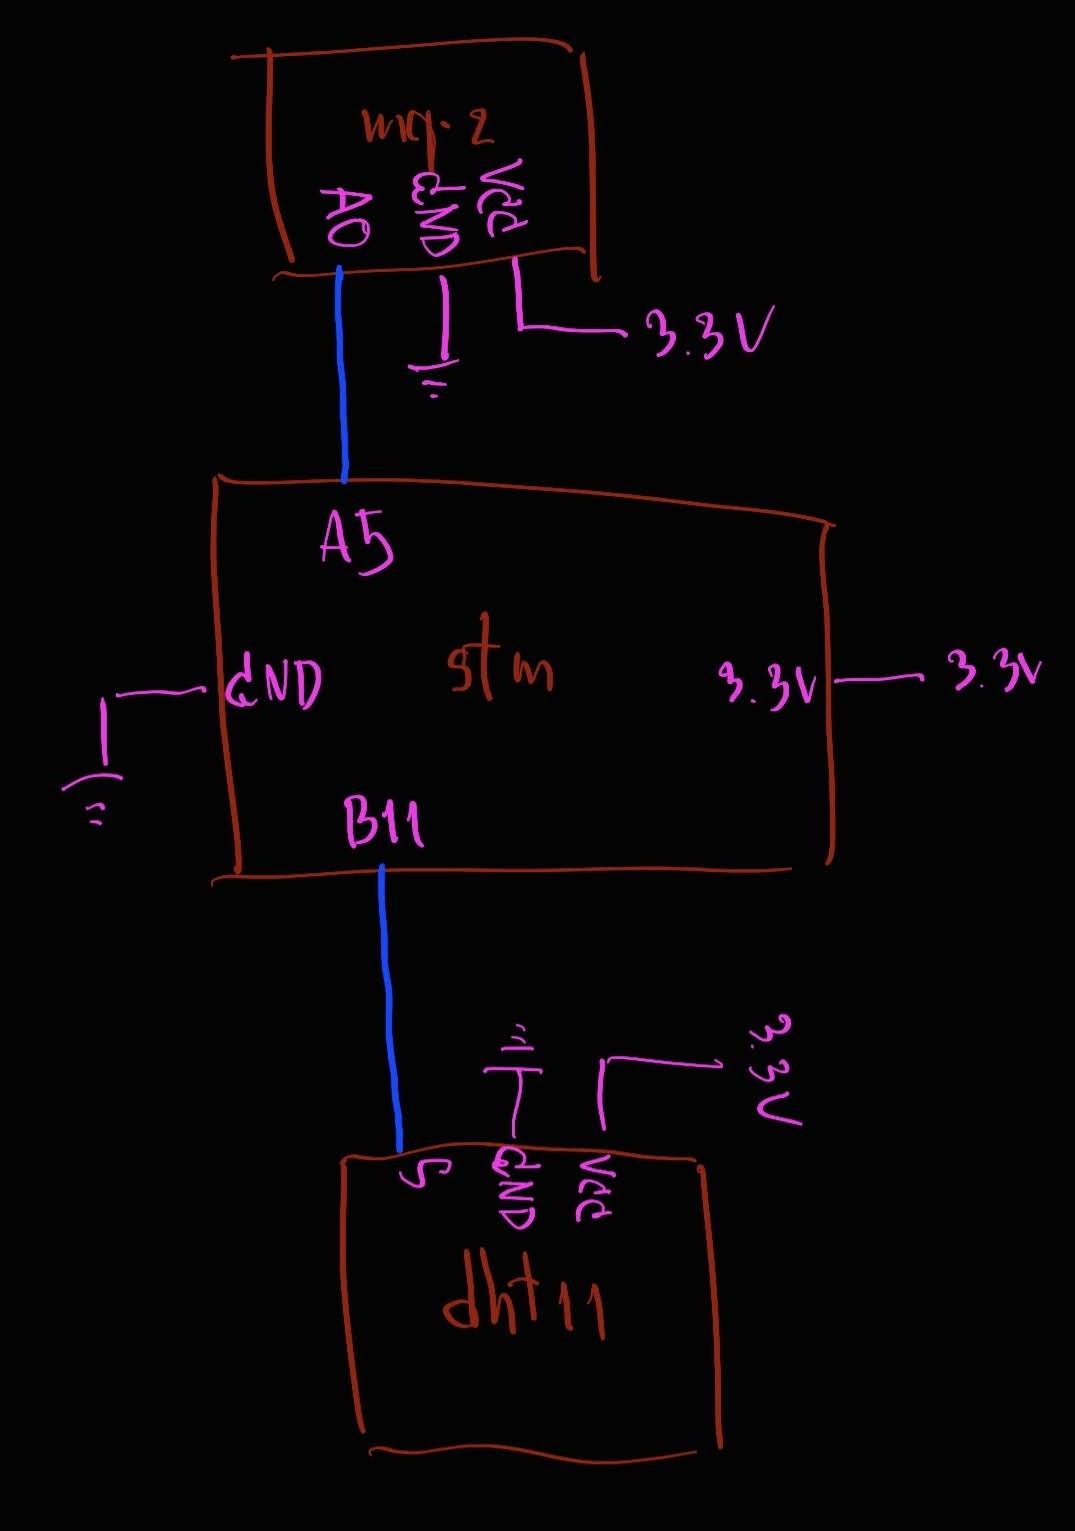 mq-2
A0 GND VCC
3.3V
A5
GND stm 3.3V 3.3V
B11
3.3V
S GND VCC
dht11